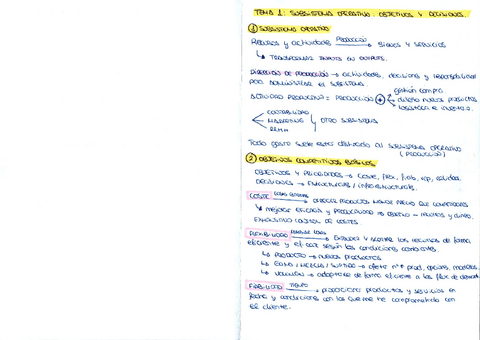 TEMA 1: SUBSISTEMA OPERATIVO. OBJETIVOS Y DECISIONES.
1 SUBSISTEMA OPERATIVO
Recursos y actividades PRODUCCIÓN → BIENES Y SERVICIOS
↳ TRANSFORMAR INPUTS EN OUTPUTS.
DIRECCIÓN DE PRODUCCIÓN → actividades, decisiones y responsabilidad
para ADMINISTRAR el SUBSISTEMA.
ACTIVIDAD PRODUCTIVA = PRODUCCIÓN + gestión compra
diseño nuevos productos
logística e invent.
CONTABILIDAD
MARKETING
RRHH
OTRO SUBSISTEMA
Todo gasto suele estar destinado al SUBSISTEMA OPERATIVO
(PRODUCCIÓN)
2 OBJETIVOS COMPETITIVOS BÁSICOS
OBJETIVOS Y PRIORIDADES → Coste, flex, fiab, calidad.
DECISIONES → ESTRUCTURALES / infraestructurales.
COSTE → OFRECER PRODUCTOS MENOR PRECIO QUE COMPETIDORES
↳ mejorar EFICACIA y PRODUCTIVIDAD → OBJETIVO
EXHAUSTIVO CONTROL DE COSTES.
FLEXIBILIDAD → los recursos de forma
eficiente y eficaz según las condiciones cambiantes.
↳ PRODUCTO → NUEVOS PRODUCTOS
↳ GAMA / MEZCLA / SURTIDO → oferta nº+ prod, opciones, modelos.
↳ VOLUMEN → adaptarse de forma eficiente a las flux de demanda
FIABILIDAD TIEMPO → proporcionar productos y servicios en
fecha y condiciones con las que me he comprometido con
el cliente.